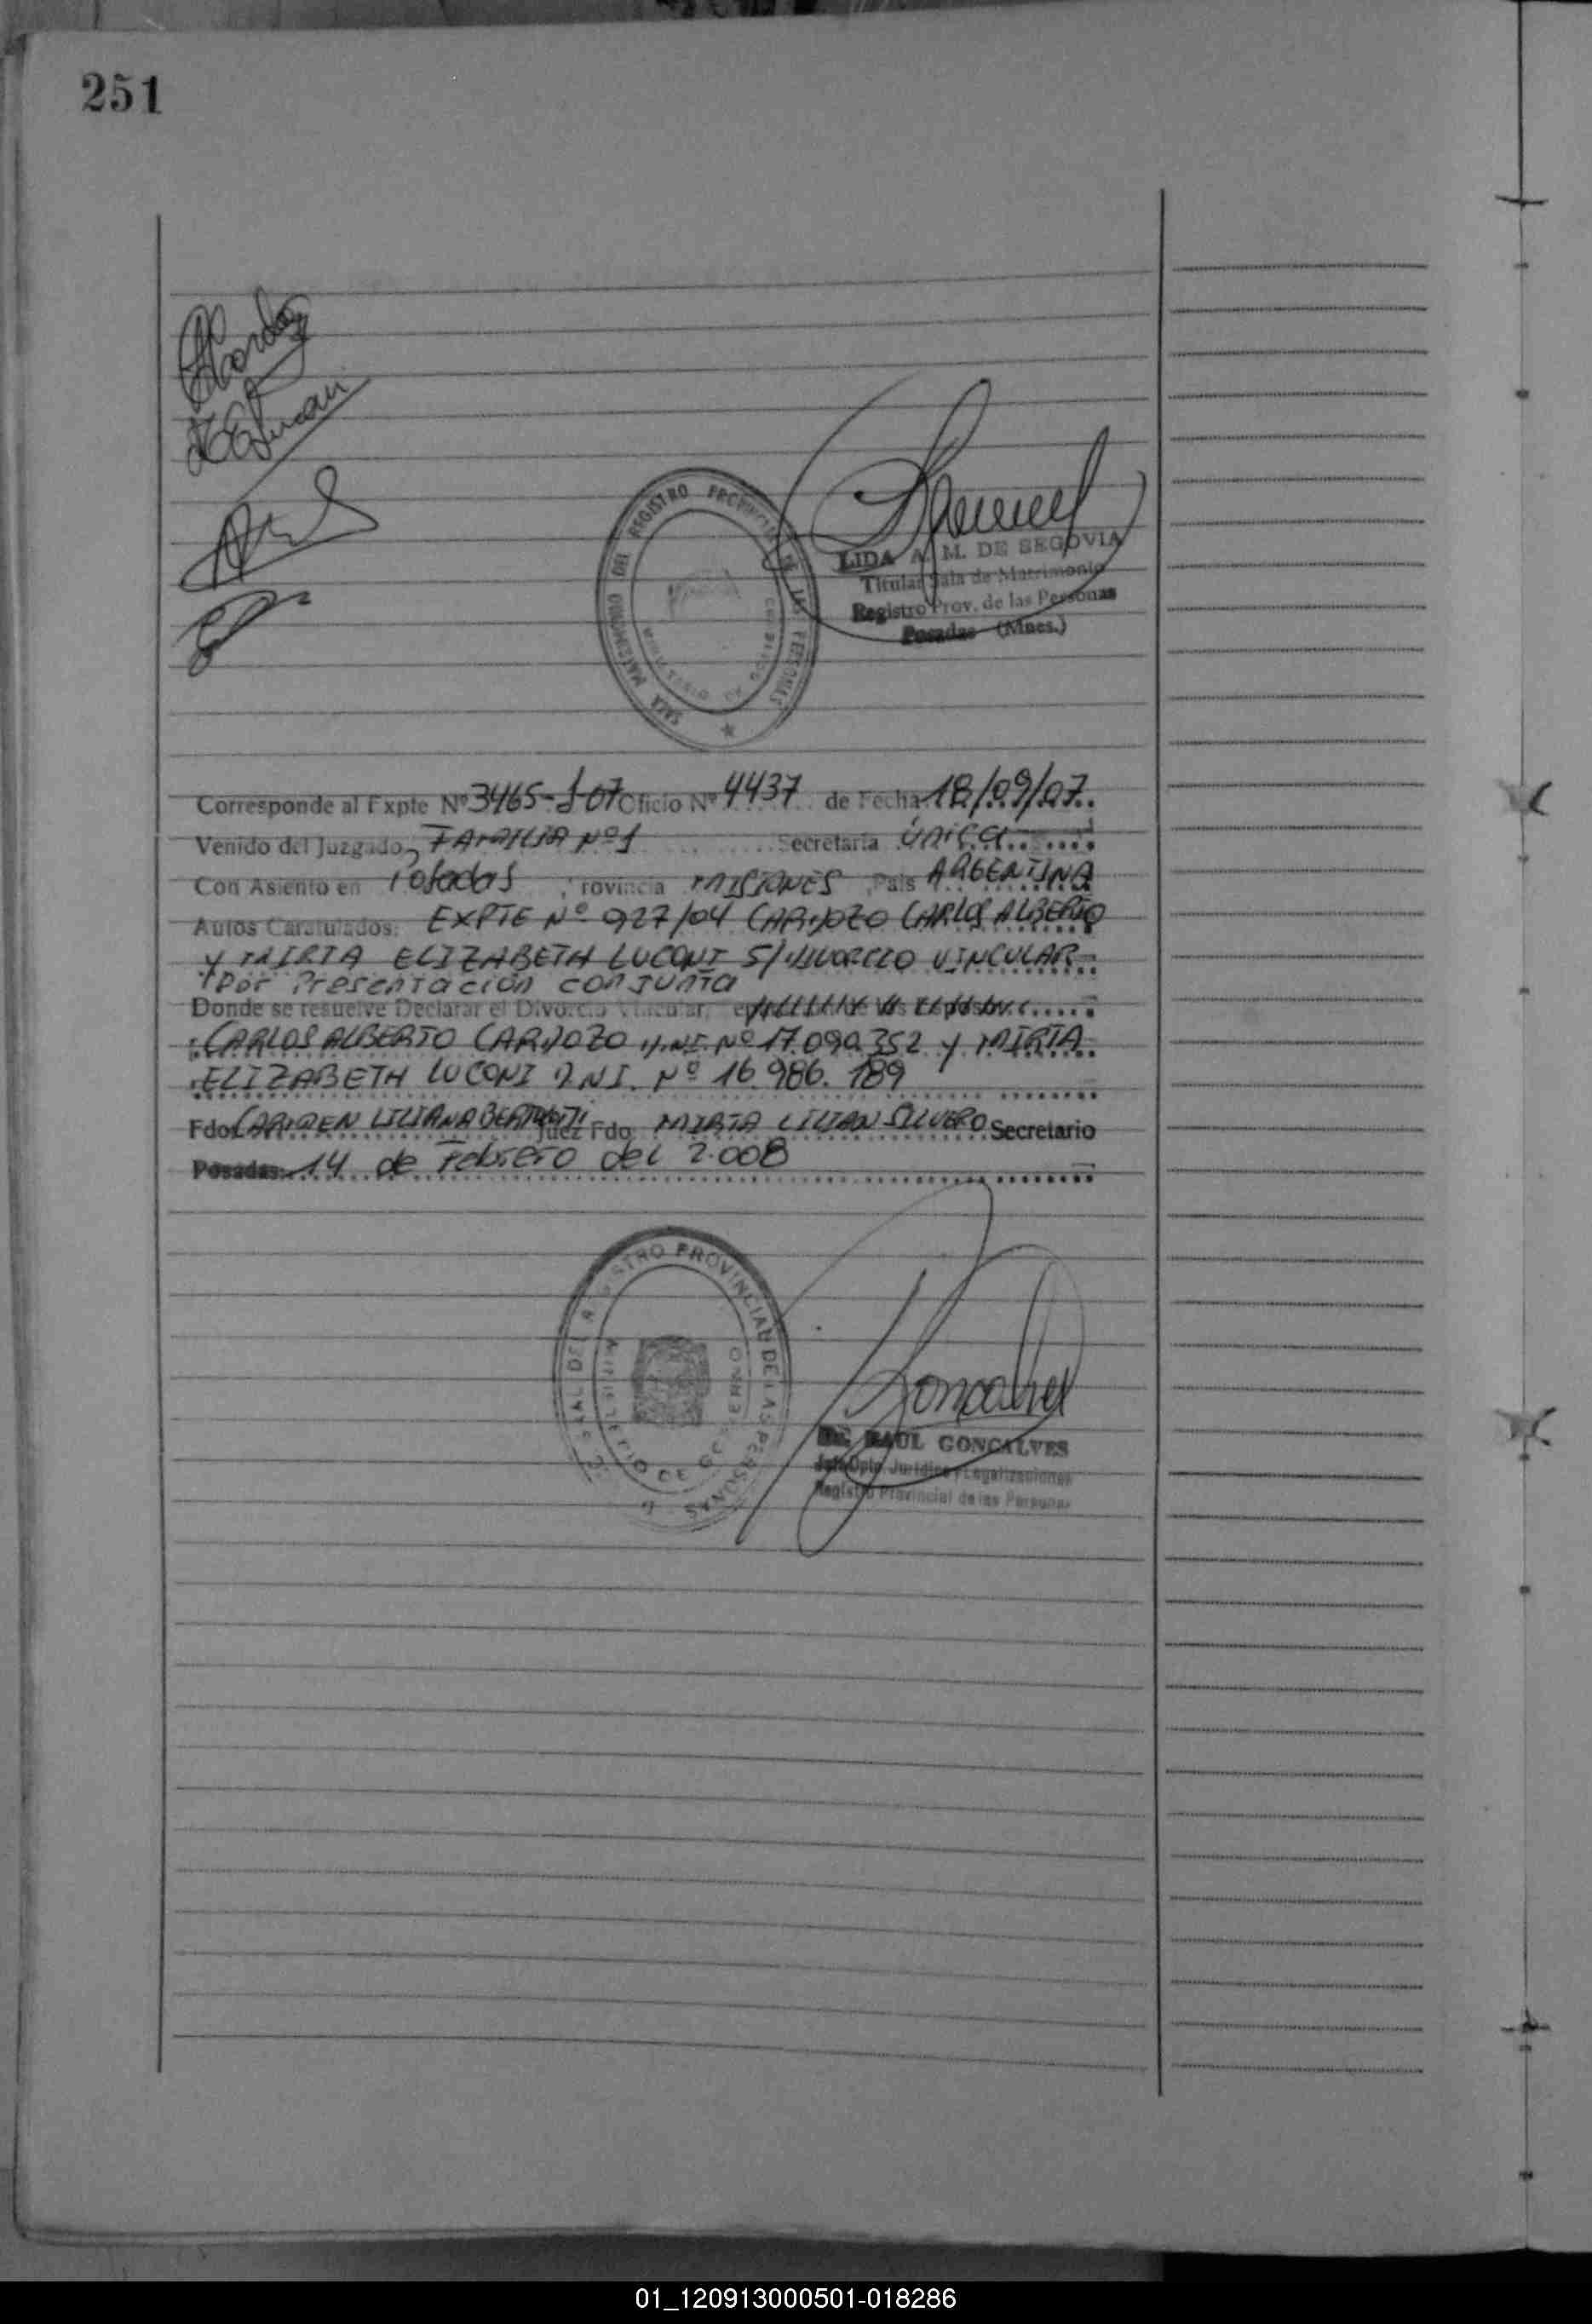 251
SALA MATRIMONIO DEL REGISTRO PROVINCIAL DE LAS PERSONAS
LIDA A. M. DE SEGOVIA
Titular Sala de Matrimonio
Registro Prov. de las Personas
Posadas (Mnes.)
Corresponde al Expte Nº 3465-J-07 Oficio Nº 4437 de Fecha 18/09/07
Venido del Juzgado, FAMILIA Nº 1 Secretaría Única
Con Asiento en Posadas Provincia MISIONES País ARGENTINA
Autos Caratulados: EXPTE Nº 927/04 CARDOZO CARLOS ALBERTO
Y MIRTA ELIZABETH LUCONI S/DIVORCIO VINCULAR
Por Presentación conjunta
Donde se resuelve Declarar el Divorcio Vincular,
CARLOS ALBERTO CARDOZO D.N.I. Nº 17.090.352 y MIRTA
ELIZABETH LUCONI D.N.I. Nº 16.986.189
Fdo. CARMEN LILIANA Juez Fdo. MIRTA LILIAN SILVERO Secretario
Posadas: 14 de Febrero del 2.008
REGISTRO PROVINCIAL DE LAS PERSONAS
MINISTERIO DE GOBIERNO
Dr. RAUL GONCALVES
Jefe Dpto. Jurídico y Legalizaciones
Registro Provincial de las Personas
01_120913000501-018286